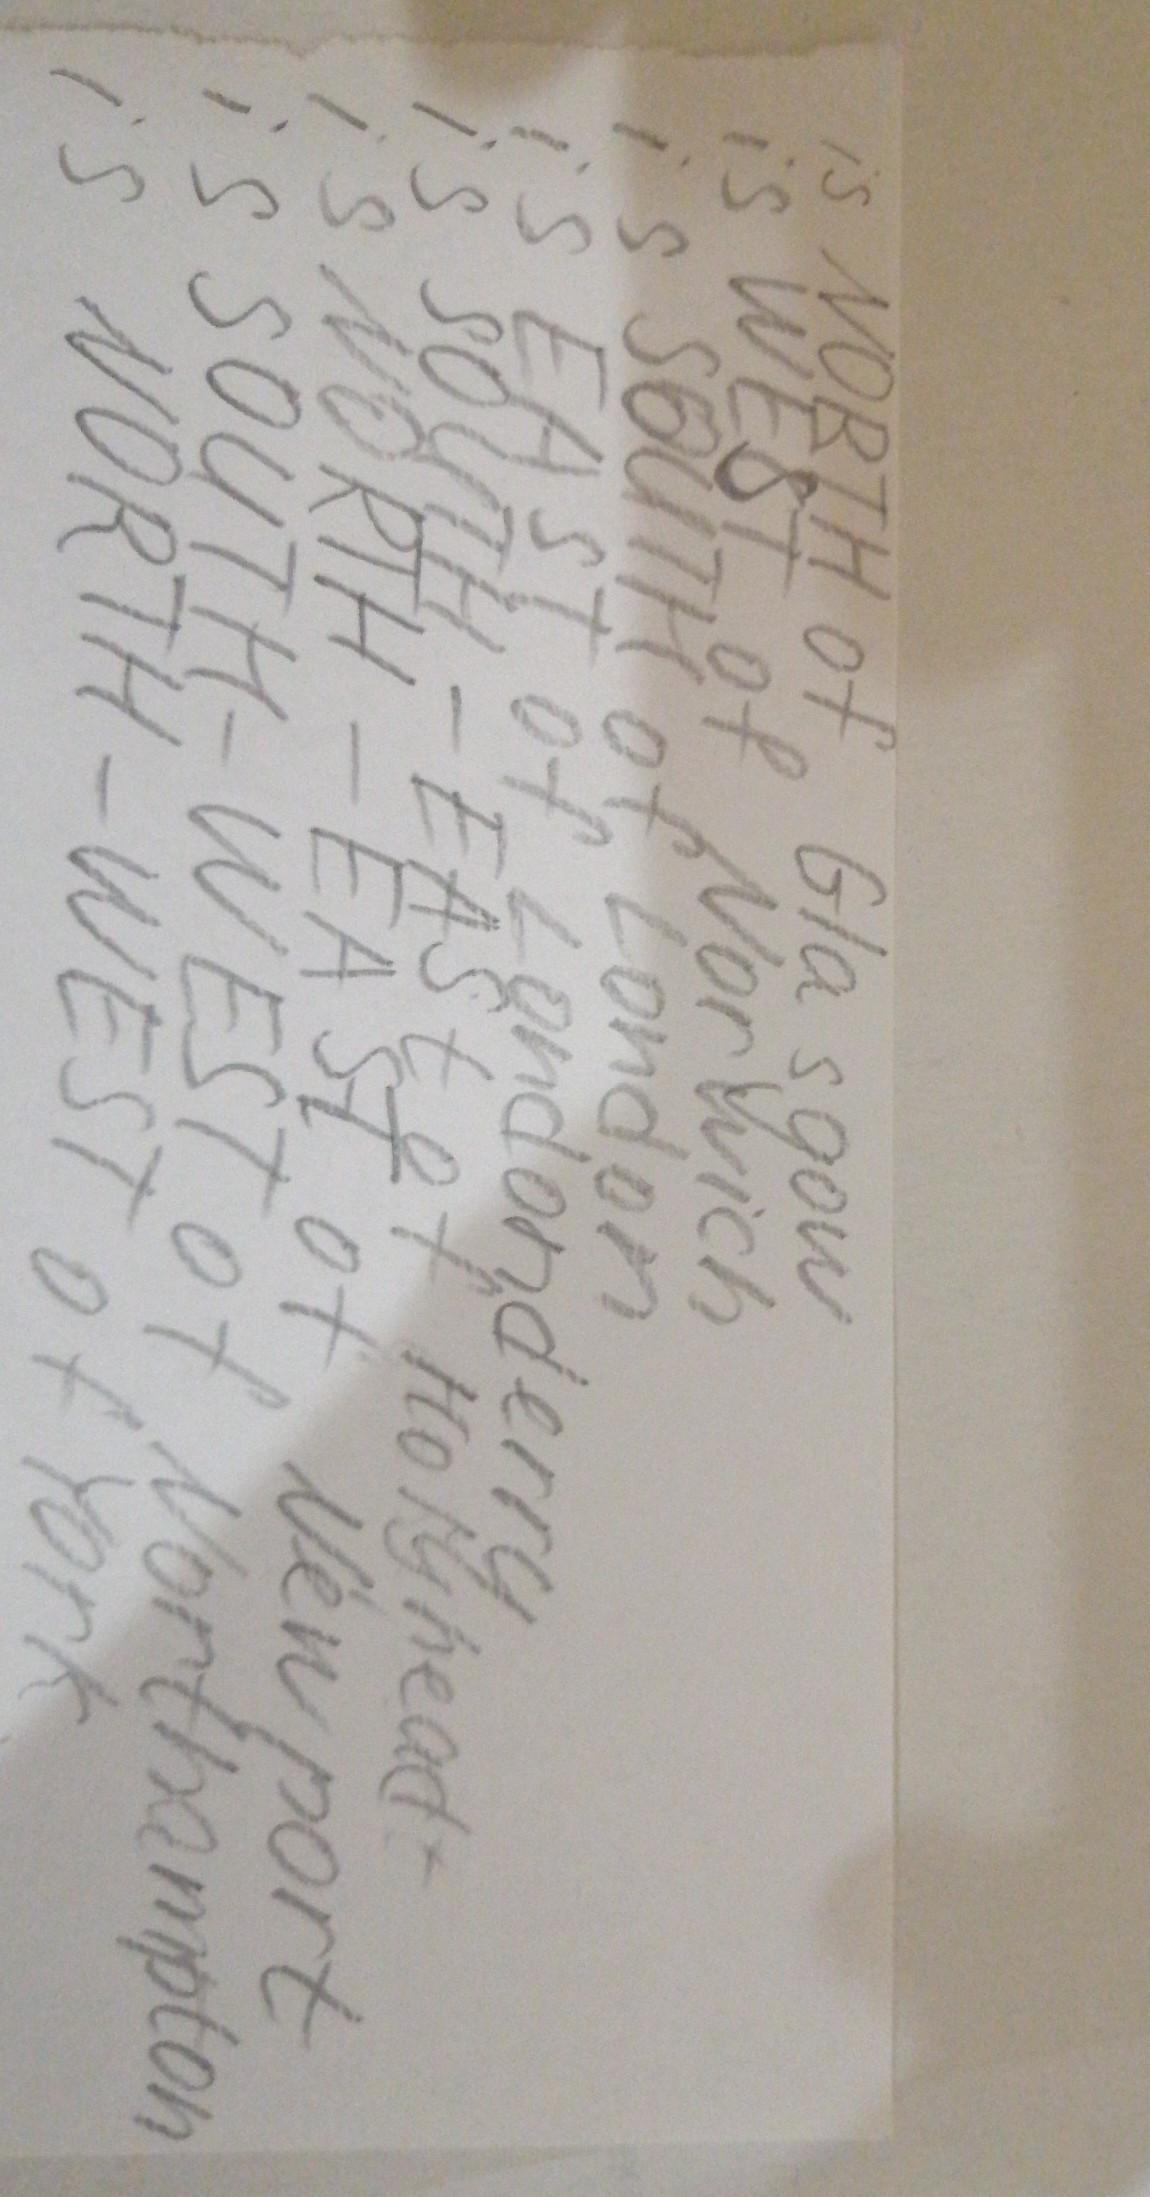 is NORTH of Glasgow
is WEST of Norwich
is SOUTH of London
is EAST of Londonderry
is SOUTH-EASt of Holyhead
is NORTH-EAST of Newport
is SOUTH-WEST of Northampton
is NORTH-WEST of York